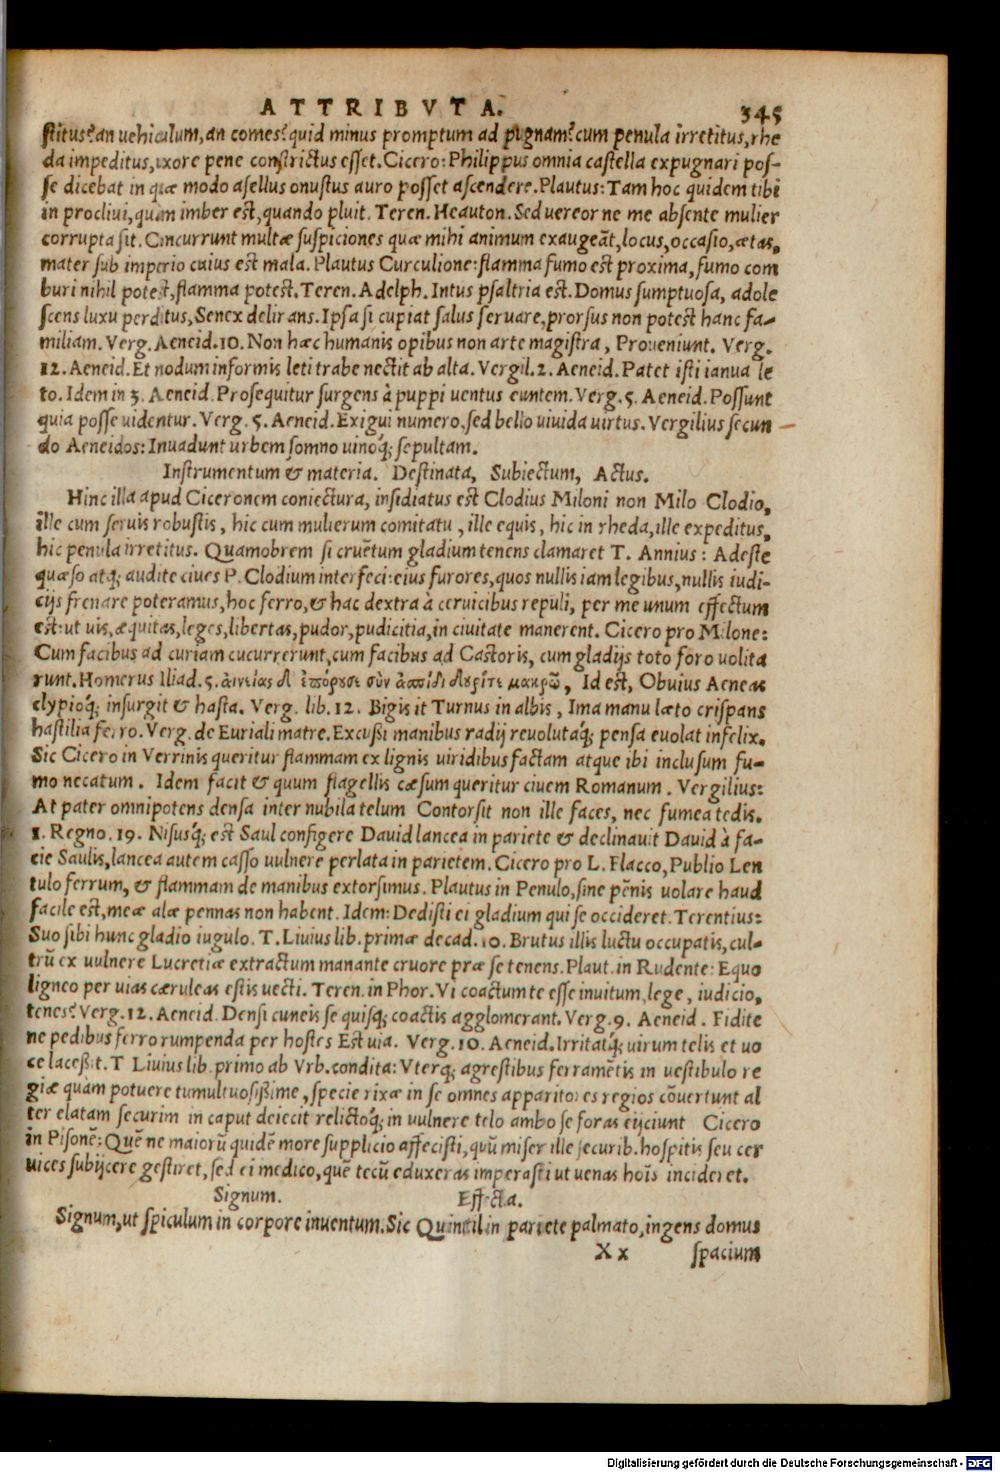 ATTRIBVTA. 345
stitus? an uehiculum, an comes? quid minus promptum ad pugnam? cum penula irretitus, rhe
da impeditus, uxore pene constrictus esset. Cicero: Philippus omnia castella expugnari pos-
se dicebat in quæ modo asellus onustus auro posset ascendere. Plautus: Tam hoc quidem tibi
in procliui, quàm imber est, quando pluit. Teren. Heauton. Sed uereor ne me absente mulier
corrupta sit. Concurrunt multæ suspiciones quæ mihi animum exaugeãt, locus, occasio, ætas,
mater sub imperio cuius est mala. Plautus Curculione: flamma fumo est proxima, fumo com
buri nihil potest, flamma potest. Teren. Adelph. Intus psaltria est. Domus sumptuosa, adole
scens luxu perditus, Senex delirans. Ipsa si cupiat salus seruare, prorsus non potest hanc fa-
miliam. Verg. Aeneid. 10. Non hæc humanis opibus non arte magistra, Proueniunt. Verg.
12. Aeneid. Et nodum informis leti trabe nectit ab alta. Vergil. 2. Aeneid. Patet isti ianua le
to. Idem in 3. Aeneid. Prosequitur surgens à puppi uentus euntem. Verg. 5. Aeneid. Possunt
quia posse uidentur. Verg. 5. Aeneid. Exigui numero, sed bello uiuida uirtus. Vergilius secun
do Aeneidos: Inuadunt urbem somno uinoq́; sepultam.
Instrumentum & materia. Destinata, Subiectum, Actus.
Hinc illa apud Ciceronem coniectura, insidiatus est Clodius Miloni non Milo Clodio,
ille cum seruis robustis, hic cum mulierum comitatu, ille equis, hic in rheda, ille expeditus,
hic penula irretitus. Quamobrem si cruẽtum gladium tenens clamaret T. Annius: Adeste
quæso atq; audite ciues P. Clodium interfeci: eius furores, quos nullis iam legibus, nullis iudi-
cijs frenare poteramus, hoc ferro, & hac dextra à ceruicibus repuli, per me unum effectum
est: ut uis, æquitas, leges, libertas, pudor, pudicitia, in ciuitate manerent. Cicero pro Milone:
Cum facibus ad curiam cucurrerunt, cum facibus ad Castoris, cum gladijs toto foro uolita
runt. Homerus Iliad. 5. αἰνείας δ᾽ ἐπόρουσε σὺν ἀσπίδι δουρίτε μακρῶ, Id est, Obuius Aeneas
clypioq́; insurgit & hasta. Verg. lib. 12. Bigis it Turnus in albis, Ima manu læto crispans
hastilia ferro. Verg. de Euriali matre. Excußi manibus radij reuolutaq́; pensa euolat infelix.
Sic Cicero in Verrinis queritur flammam ex lignis uiridibus factam atque ibi inclusum fu-
mo necatum. Idem facit & quum flagellis cæsum queritur ciuem Romanum. Vergilius:
At pater omnipotens densa inter nubila telum Contorsit non ille faces, nec fumea tedis.
1. Regno. 19. Nisusq́; est Saul configere Dauid lancea in pariete & declinauit Dauid à fa-
cie Saulis, lancea autem casso uulnere perlata in parietem. Cicero pro L. Flacco, Publio Len
tulo ferrum, & flammam de manibus extorsimus. Plautus in Penulo, sine pẽnis uolare haud
facile est, meæ alæ pennas non habent. Idem: Dedisti ei gladium qui se occideret. Terentius:
Suo sibi hunc gladio iugulo. T. Liuius lib. primæ decad. 10. Brutus illis luctu occupatis, cul-
trũ ex uulnere Lucretiæ extractum manante cruore præ se tenens. Plaut. in Rudente: Equo
ligneo per uias cæruleas estis uecti. Teren. in Phor. Vi coactum te esse inuitum, lege, iudicio,
tenes? Verg. 12. Aeneid. Densi cuneis se quisq; coactis agglomerant. Verg. 9. Aeneid. Fidite
ne pedibus ferro rumpenda per hostes Est uia. Verg. 10. Aeneid. Irritatq́; uirum telis et uo
ce laceßit. T Liuius lib. primo ab Vrb. condita: Vterq; agrestibus ferramẽtis in uestibulo re
giæ quàm potuere tumultuosißime, specie rixæ in se omnes apparitores regios cõuertunt al
ter elatam securim in caput deiecit relictoq́; in uulnere telo ambo se foras eijciunt Cicero
in Pisonẽ: Quẽ ne maiorũ quidẽ more supplicio affecisti, quũ miser ille securib. hospitis seu cer
uices subijcere gestiret, sed ei medico, quẽ tecũ eduxeras imperasti ut uenas hoĩs incideret.
Signum. Effecta.
Signum, ut spiculum in corpore inuentum. Sic Quintil in pariete palmato, ingens domus
Xx spacium
Digitalisierung gefördert durch die Deutsche Forschungsgemeinschaft - DFG